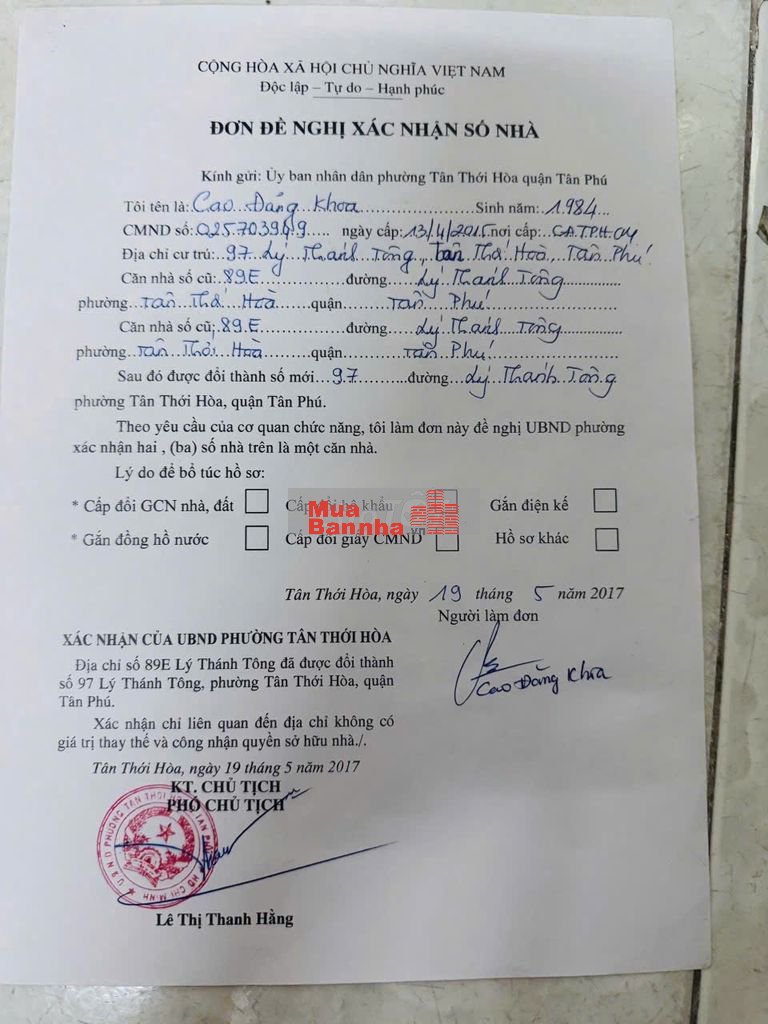 CỘNG HÒA XÃ HỘI CHỦ NGHĨA VIỆT NAM
Độc lập – Tự do – Hạnh phúc
ĐƠN ĐỀ NGHỊ XÁC NHẬN SỐ NHÀ
Kính gửi: Ủy ban nhân dân phường Tân Thới Hòa quận Tân Phú
Tôi tên là: Cao Đăng Khoa Sinh năm: 1984
CMND số: 025703949 ngày cấp: 13/4/2015 nơi cấp: CA.TP.HCM
Địa chỉ cư trú: 97 Lý Thánh Tông, Tân Thới Hoà, Tân Phú
Căn nhà số cũ: 89E đường Lý Thánh Tông
phường Tân Thới Hoà quận Tân Phú
Căn nhà số cũ: 89E đường Lý Thánh Tông
phường Tân Thới Hoà quận Tân Phú
Sau đó được đổi thành số mới 97 đường Lý Thánh Tông
phường Tân Thới Hòa, quận Tân Phú.
Theo yêu cầu của cơ quan chức năng, tôi làm đơn này đề nghị UBND phường
xác nhận hai , (ba) số nhà trên là một căn nhà.
Lý do để bổ túc hồ sơ:
* Cấp đổi GCN nhà, đất Cấp đổi hộ khẩu Gắn điện kế
* Gắn đồng hồ nước Cấp đổi giấy CMND Hồ sơ khác
Mua
Bannha
Tân Thới Hòa, ngày 19 tháng 5 năm 2017
Người làm đơn
Cao Đăng Khoa
XÁC NHẬN CỦA UBND PHƯỜNG TÂN THỚI HÒA
Địa chỉ số 89E Lý Thánh Tông đã được đổi thành
số 97 Lý Thánh Tông, phường Tân Thới Hòa, quận
Tân Phú.
Xác nhận chỉ liên quan đến địa chỉ không có
giá trị thay thế và công nhận quyền sở hữu nhà./.
Tân Thới Hòa, ngày 19 tháng 5 năm 2017
KT. CHỦ TỊCH
PHÓ CHỦ TỊCH
Lê Thị Thanh Hằng